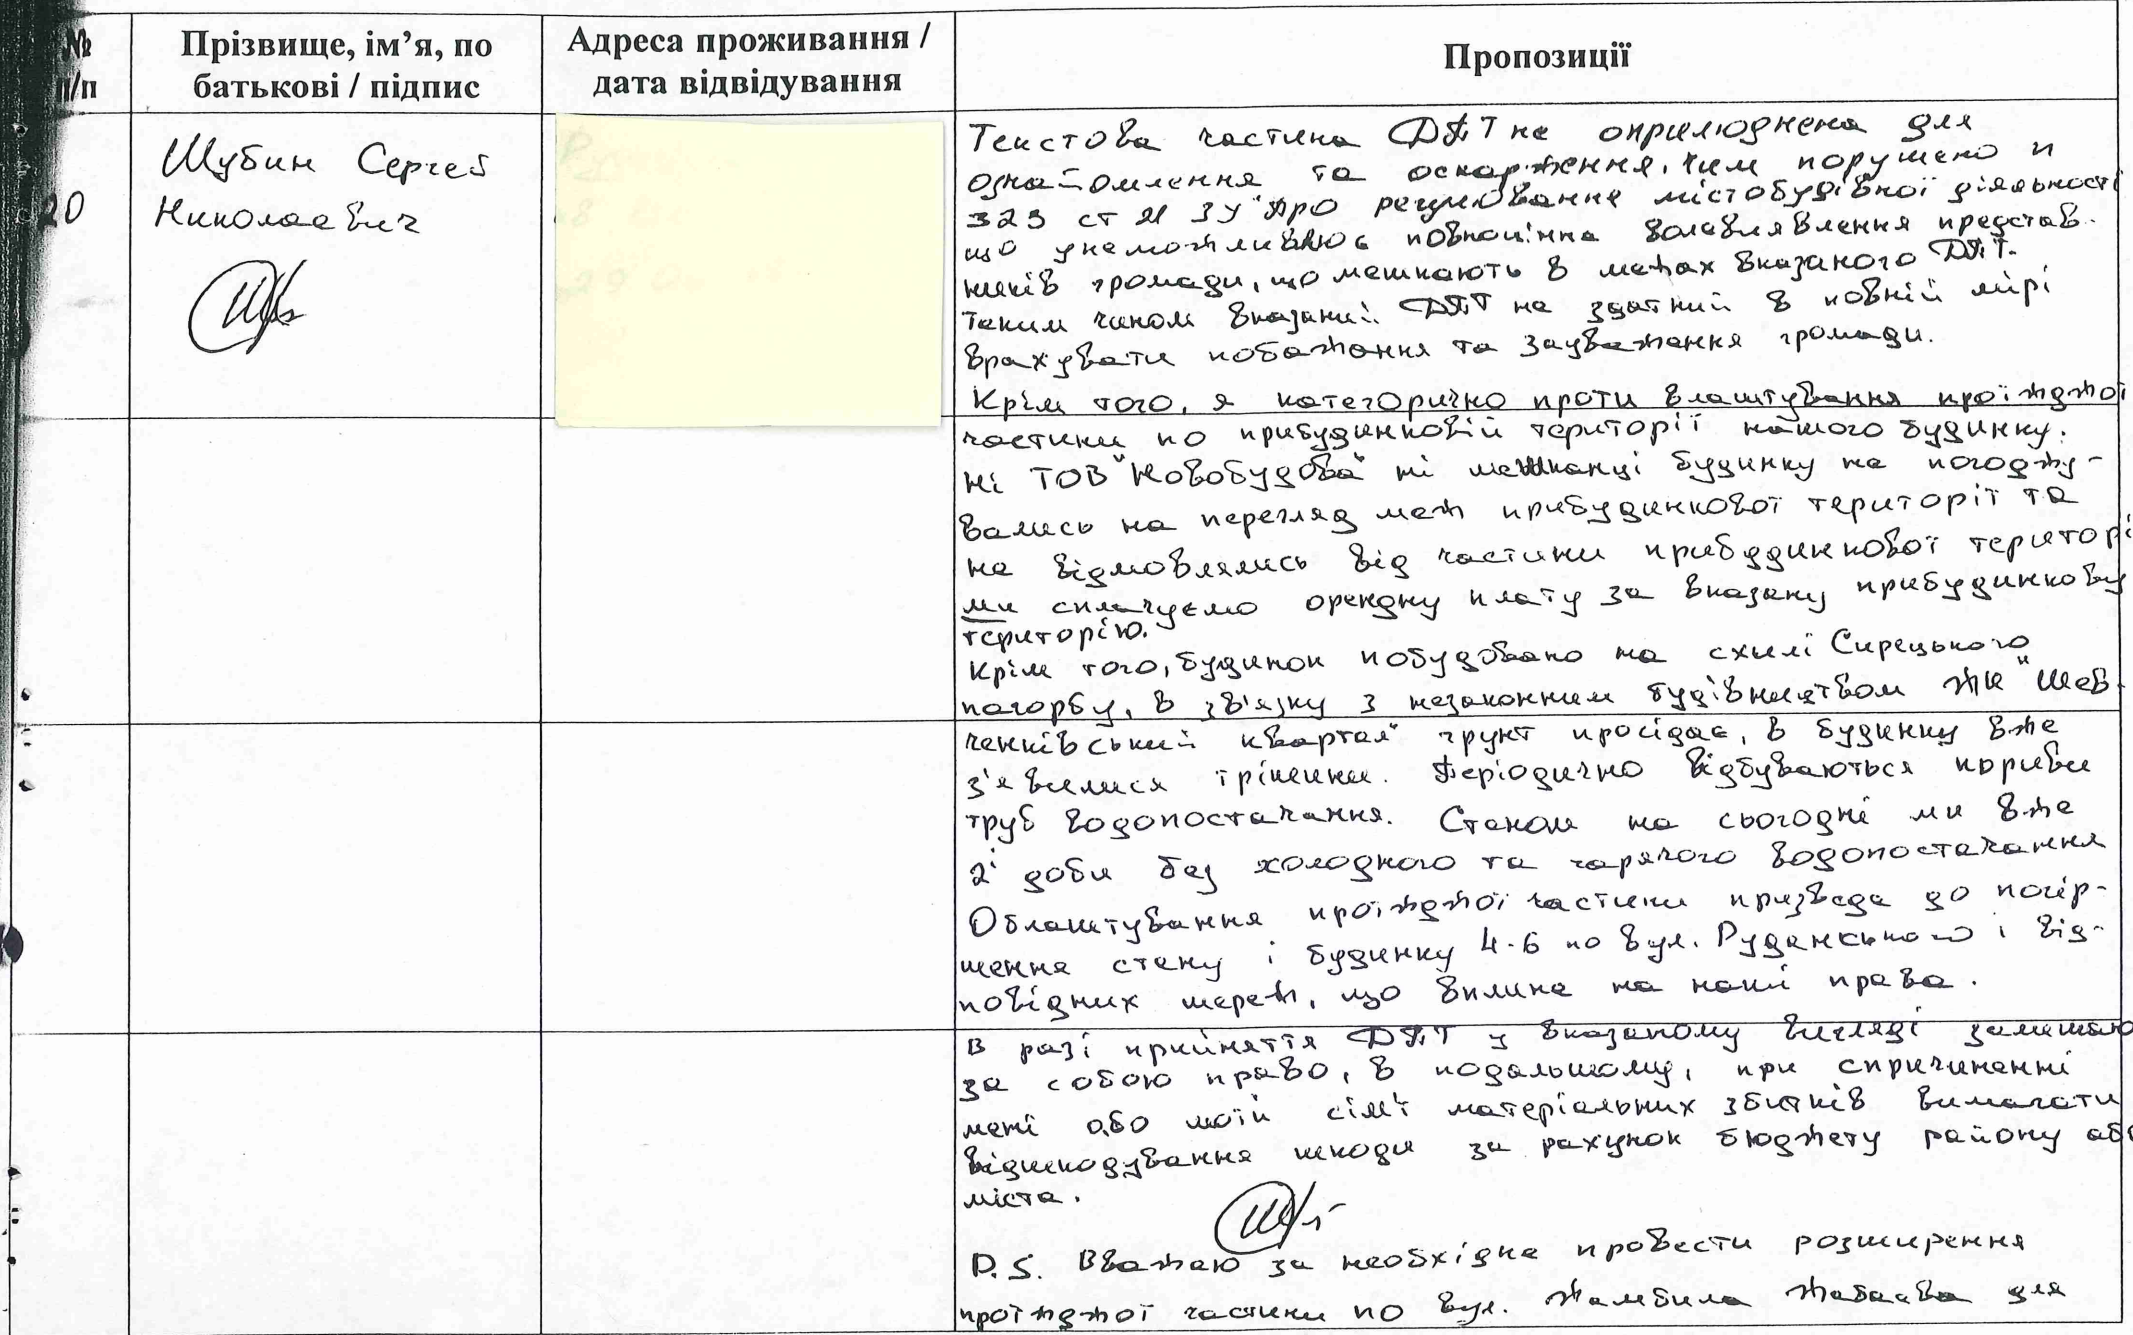 № п/п
Прізвище, ім’я, по батькові / підпис
Адреса проживання / дата відвідування
Пропозиції
20
Шубин Сергей
Николаевич
Текстова частина ДПТ не оприлюднена для
ознайомлення та оскарження, чим порушено п
323 ст 21 ЗУ "Про регулювання містобудівної діяльності
що унеможливлює повноцінне волевиявлення представ-
ників громади, що мешкають в межах вказаного ДПТ.
Таким чином вказаний ДПТ не здатний в повній мірі
врахувати побажання та зауваження громади.
Крім того, я категорично проти влаштування проїжджої
частини по прибудинковій території нашого будинку.
Ні ТОВ "Новобудова" ні мешканці будинку не погоджу-
вались на перегляд меж прибудинкової території та
не відмовлялись від частини прибудинкової територі
ми сплачуємо орендну плату за вказану прибудинкову
територію.
Крім того, будинок побудовано на схилі Сирецького
пагорбу, в зв'язку з незаконним будівництвом ЖК "Шев-
ченківський квартал" грунт просідає, в будинку вже
з'явилися тріщини. Періодично відбуваються пориви
труб водопостачання. Станом на сьогодні ми вже
2 доби без холодного та гарячого водопостачання
Облаштування проїжджої частини призведе до погір-
шення стану і будинку 4-6 по вул. Руданського і від-
повідних мереж, що вплине на наші права.
В разі прийняття ДПТ у вказаному вигляді залишаю
за собою право, в подальшому, при спричиненні
мені або моїй сім'ї матеріальних збитків вимагати
відшкодування шкоди за рахунок бюджету району або
міста.
P.S. Вважаю за необхідне провести розширення
проїжджої частини по вул. Жамбила Жабаєва для